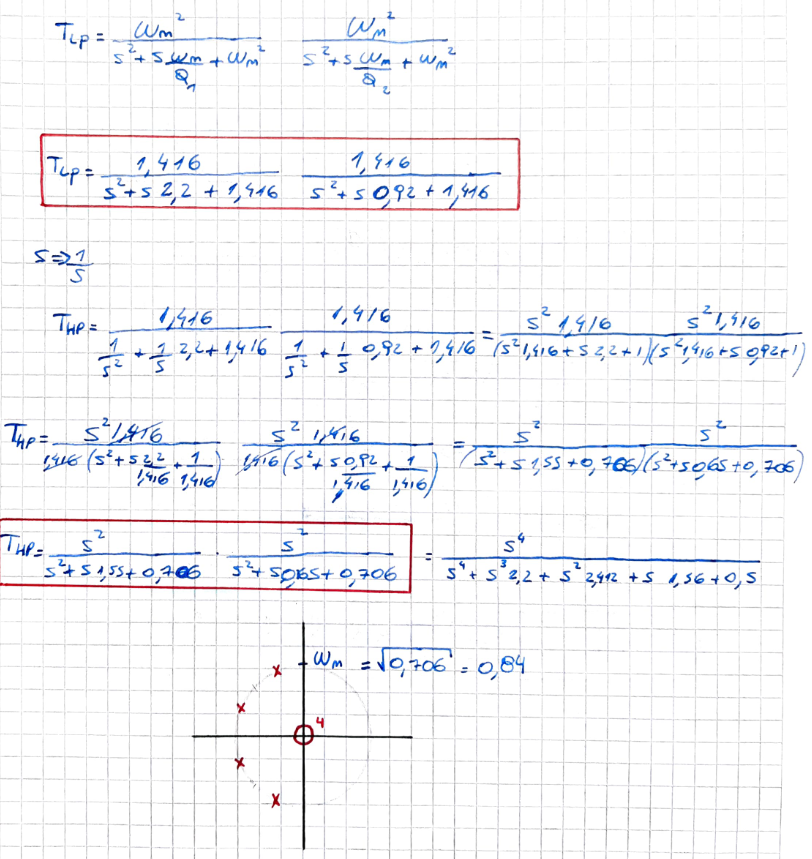 T_LP = ωm² / (s² + s ωm/Q₁ + ωm²)   ωm² / (s² + s ωm/Q₂ + ωm²)
T_LP = 1,416 / (s² + s 2,2 + 1,416)   1,416 / (s² + s 0,92 + 1,416)
s ⇒ 1/s
T_HP = 1,416 / (1/s² + 1/s 2,2 + 1,416)   1,416 / (1/s² + 1/s 0,92 + 1,416) = s² 1,416   s² 1,416 / (s² 1,416 + s 2,2 + 1)(s² 1,416 + s 0,92 + 1)
T_HP = s² 1,416 / 1,416 (s² + s 2,2/1,416 + 1/1,416)   s² 1,416 / 1,416 (s² + s 0,92/1,416 + 1/1,416) = s²   s² / (s² + s 1,55 + 0,706)(s² + s 0,65 + 0,706)
T_HP = s² / (s² + s 1,55 + 0,706) · s² / (s² + s 0,65 + 0,706) = s⁴ / (s⁴ + s³ 2,2 + s² 2,412 + s 1,56 + 0,5)
ωm = √0,706 = 0,84
4